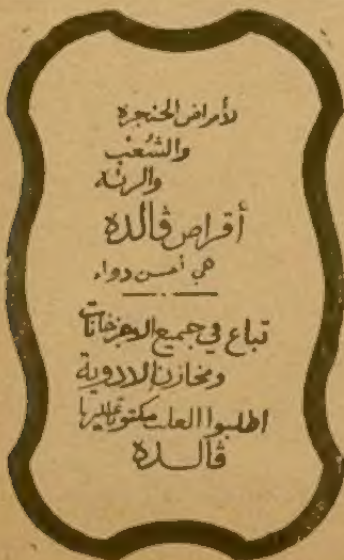 لأمراض الحنجرة
والشُعَب
والرئة
أقراص ڤالده
هي أحسن دواء
تباع في جميع الاجزخانات
ومخازن الادوية
اطلبوا العلب مكتوبا عليها
ڤالده